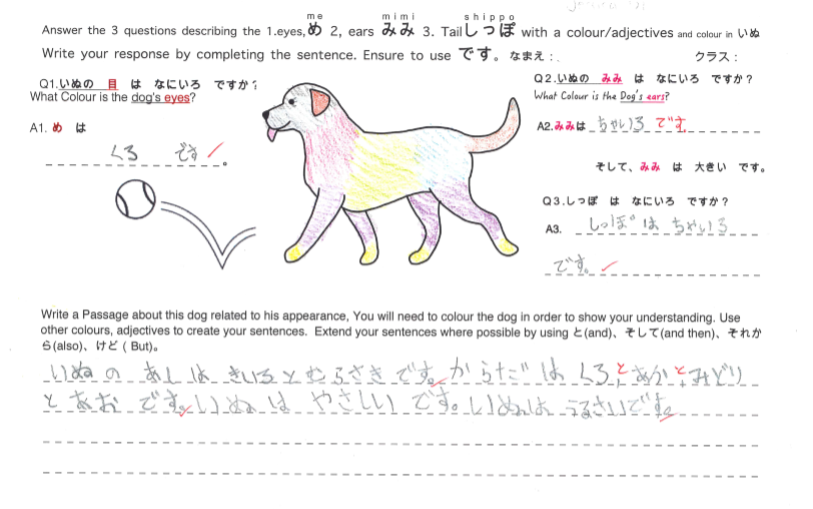 me mimi shippo
Answer the 3 questions describing the 1.eyes,め 2, ears みみ 3. Tailしっぽ with a colour/adjectives and colour in いぬ
Write your response by completing the sentence. Ensure to use です。 なまえ：. クラス：
Q1.いぬの 目 は なにいろ ですか？
What Colour is the dog's eyes?
A1. め は
くろ です。
Q2.いぬの みみ は なにいろ ですか？
What Colour is the Dog's ears?
A2.みみは ちゃいろ です
そして、みみ は 大きい です。
Q3.しっぽ は なにいろ ですか？
A3. しっぽ は ちゃいろ
です。
Write a Passage about this dog related to his appearance, You will need to colour the dog in order to show your understanding. Use
other colours, adjectives to create your sentences. Extend your sentences where possible by using と(and)、そして(and then)、それか
ら(also)、けど ( But)。
いぬ の あし は きいろ と むらさき です。からだ は くろ と あか と みどり
と あお です。いぬ は やさしい です。いぬ は うるさいです。